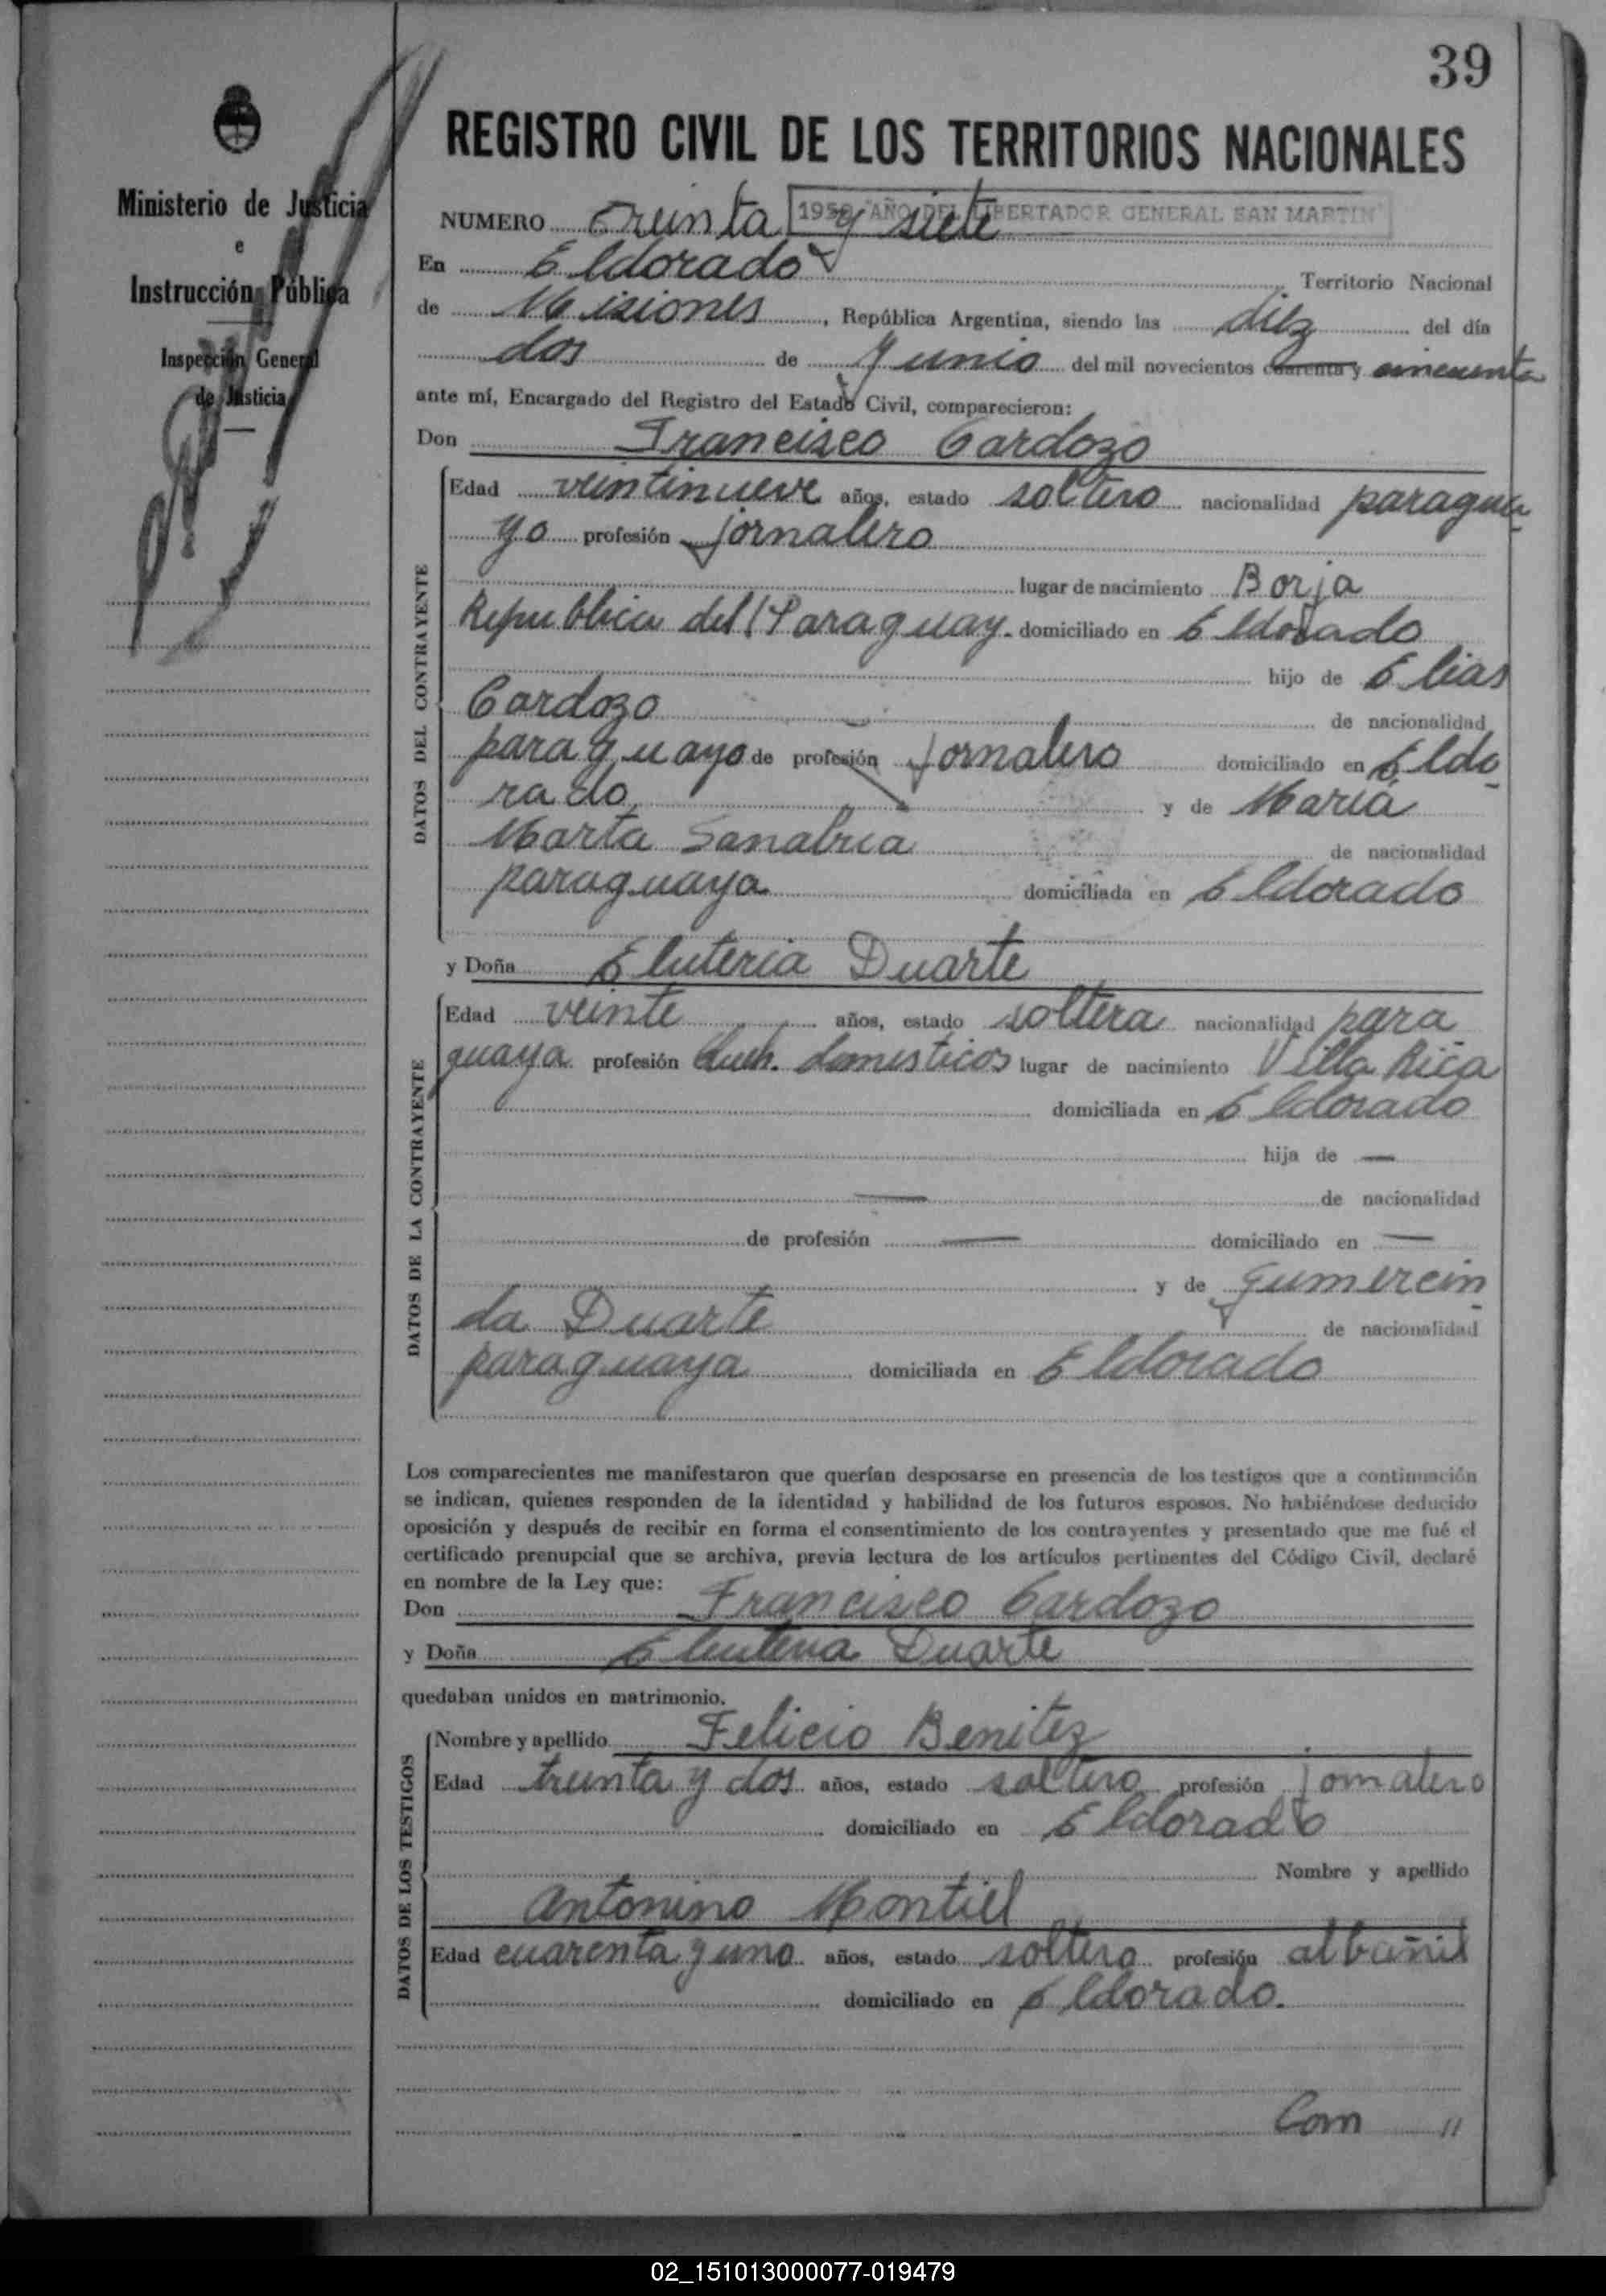 39
Ministerio de Justicia
e
Instrucción Pública
Inspección General
de Justicia
REGISTRO CIVIL DE LOS TERRITORIOS NACIONALES
1950 "AÑO DEL LIBERTADOR GENERAL SAN MARTIN"
NUMERO Treinta y siete
En Eldorado Territorio Nacional
de Misiones, República Argentina, siendo las diez del día
dos de Junio del mil novecientos cuarenta y cincuenta
ante mí, Encargado del Registro del Estado Civil, comparecieron:
Don Francisco Cardozo
DATOS DEL CONTRAYENTE
Edad veintinueve años, estado soltero nacionalidad paragua
yo profesión jornalero
lugar de nacimiento Borja
Republica del Paraguay. domiciliado en Eldorado
hijo de Elias
Cardozo de nacionalidad
paraguayo de profesión jornalero domiciliado en Eldo
rado y de Maria
Marta Sanabria de nacionalidad
paraguaya domiciliada en Eldorado
y Doña Eluteria Duarte
DATOS DE LA CONTRAYENTE
Edad veinte años, estado soltera nacionalidad para
guaya profesión domesticos lugar de nacimiento Villa Rica
domiciliada en Eldorado
hija de —
— de nacionalidad
de profesión — domiciliado en —
y de Gumercin
da Duarte de nacionalidad
paraguaya domiciliada en Eldorado
Los comparecientes me manifestaron que querían desposarse en presencia de los testigos que a continuación
se indican, quienes responden de la identidad y habilidad de los futuros esposos. No habiéndose deducido
oposición y después de recibir en forma el consentimiento de los contrayentes y presentado que me fué el
certificado prenupcial que se archiva, previa lectura de los artículos pertinentes del Código Civil, declaré
en nombre de la Ley que:
Don Francisco Cardozo
y Doña Eleuteria Duarte
quedaban unidos en matrimonio.
DATOS DE LOS TESTIGOS
Nombre y apellido Felicio Benitez
Edad treinta y dos años, estado soltero profesión jornalero
domiciliado en Eldorado
Nombre y apellido
Antonino Montiel
Edad cuarenta y uno años, estado soltero profesión albañil
domiciliado en Eldorado.
Com "
02_151013000077-019479